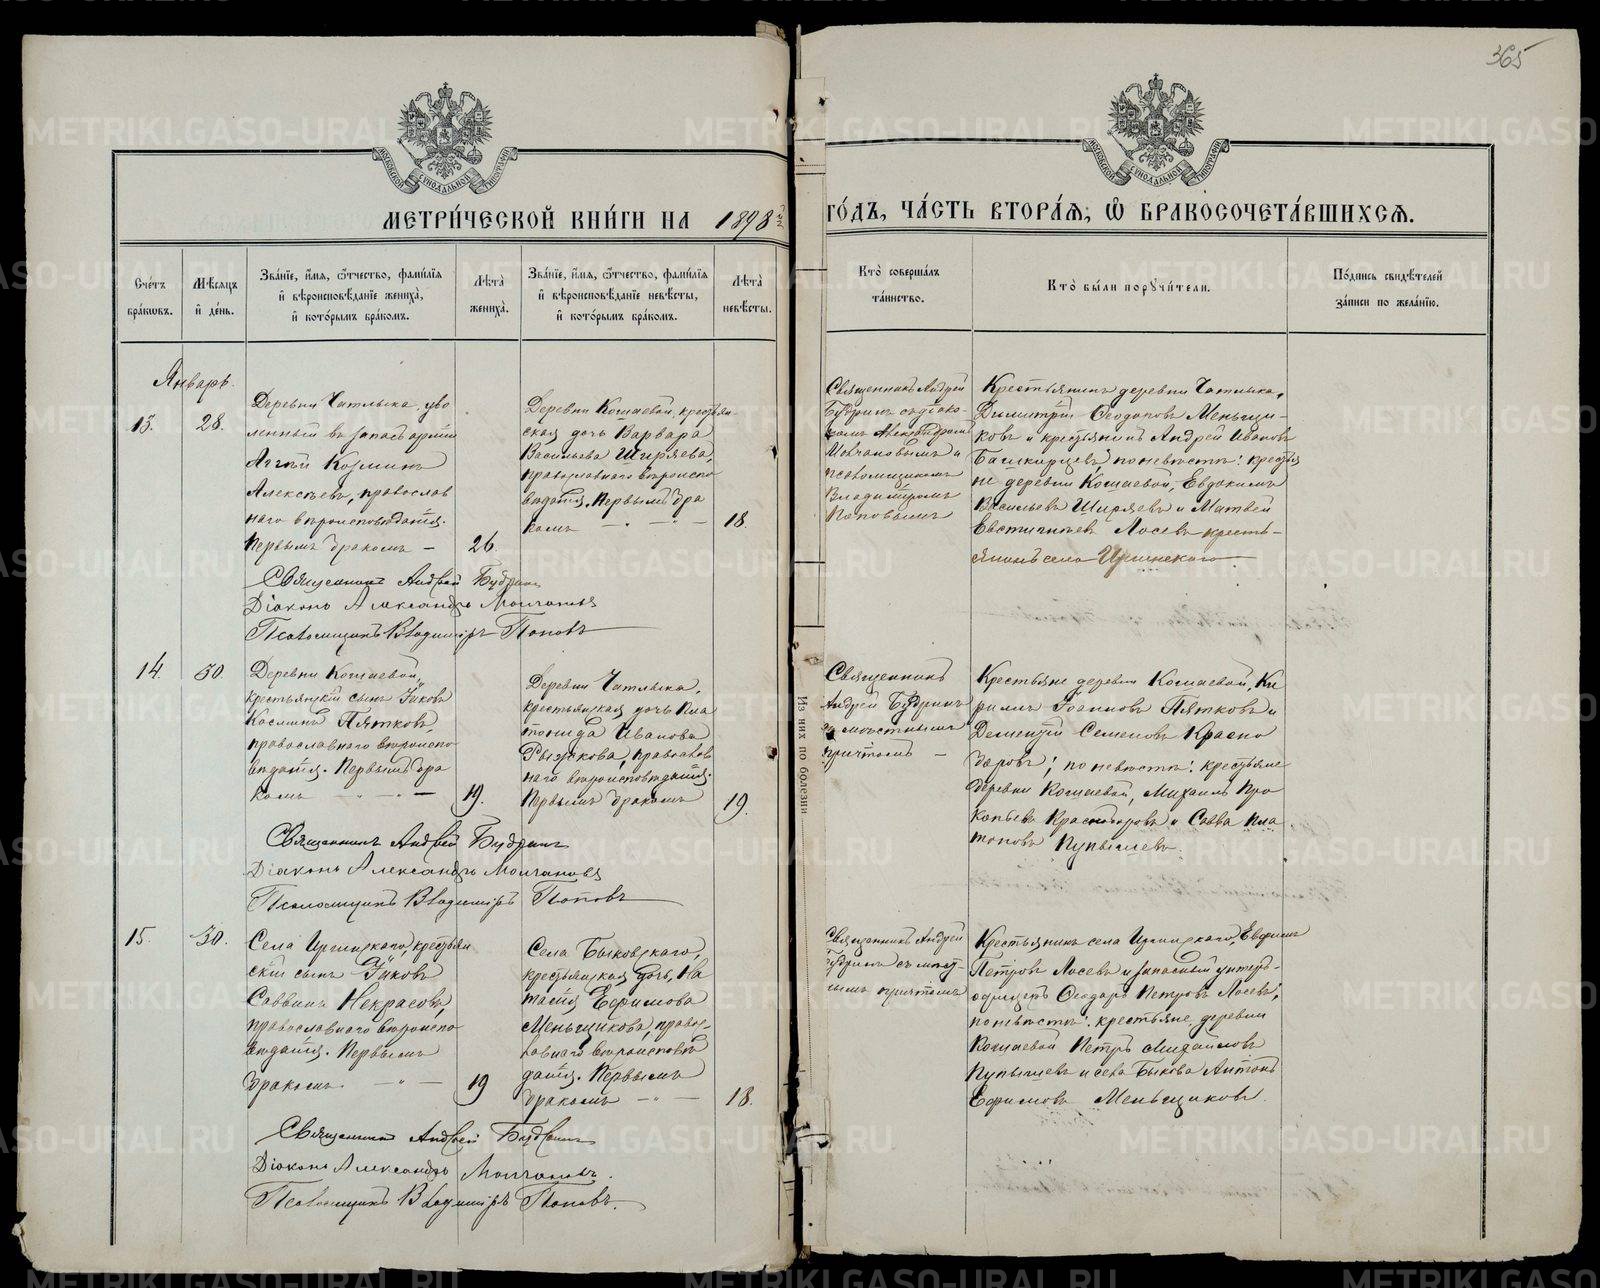 365
МЕТРИ́ЧЕСКОЙ КНИ́ГИ НА 1898 й
ГО́ДЪ, ЧА́СТЬ ВТОРА́Я, Ѽ БРАКОСОЧЕТА́ВШИХСЯ.
Сче́тъ бра́кѡвъ.
Мѣ́сяцъ и҆ де́нь.
Зва́нїе, и҆́мя, ѻ҆́тчество, фами́лїя
и҆ вѣроисповѣ́данїе жениха̀,
и҆ кото́рымъ бра́комъ.
Лѣ́та жениха̀.
Зва́нїе, и҆́мя, ѻ҆́тчество, фами́лїя
и҆ вѣроисповѣ́данїе невѣ́сты,
и҆ кото́рымъ бра́комъ.
Лѣ́та невѣ́сты.
Кто̀ соверша́лъ
та́инство.
Кто̀ бы́ли порꙋчи́тели.
По́дпись свидѣ́телей
за́писи по жела́нїю.
Январь.
13.
28.
Деревни Чатлыка, уво
ленный въ запасъ армии
Аггей Козминъ
Алексѣевъ, православ
наго вѣроисповѣданія.
Первымъ бракомъ –
26.
Деревни Кошаевой, крестьян
ская дочь Варвара
Васильева Ширяева,
православнаго вѣроиспо
вѣданія. Первымъ бра
комъ — " — " —
18.
Священникъ Андрей
Будринъ съ діако-
номъ Александромъ
Молчановымъ и
псаломщикомъ
Владиміромъ
Поповымъ
Крестьянинъ деревни Чатлыка,
Димитрій Ѳеодоповъ Меньщи-
ковъ и крестьянинъ Андрей Ивановъ
Башкирцевъ; по невѣстѣ: крестья
не деревни Кошаевой, Евдокимъ
Васильевъ Ширяевъ и Матвей
Евстигнѣевъ Лосевъ кресть-
янинъ села Иргинскаго.
Священникъ Андрей Будринъ
Діаконъ Александръ Молчановъ
Псаломщикъ Владиміръ Поповъ
14.
30.
Деревни Кошаевой,
крестьянскій сынъ Іаковъ
Косминъ Пятковъ,
православнаго вѣроиспо
вѣданія. Первымъ бра
комъ — " — " —
19.
Деревни Чатлыка,
крестьянская дочь Пла
тонида Иванова
Рыжкова, православ
наго вѣроисповѣданія.
Первымъ бракомъ
19.
Священникъ
Андрей Будринъ
съ мѣстнымъ
причтомъ –
Крестьяне деревни Кошаевой, Ки
риллъ Іоанновъ Пятковъ и
Дементій Семеновъ Красно
даровъ; по невѣстѣ: крестьяне
деревни Кошаевой, Михаилъ Про
копьевъ Краснодаровъ и Савва Пла
тоновъ Пупышевъ.
Священникъ Андрей Будринъ
Діаконъ Александръ Молчановъ
Псаломщикъ Владиміръ Поповъ
15.
30.
Села Иргинскаго, крестьян
скій сынъ Іаковъ
Саввинъ Некрасовъ,
православнаго вѣроиспо
вѣданія. Первымъ
бракомъ — " —
19
Села Быковскаго,
крестьянская дочь, На
талія Ефимова
Меньщикова, правос-
лавнаго вѣроисповѣ
данія. Первымъ
бракомъ — " —
18.
Священникъ Андрей
Будринъ съ мѣст-
нымъ причтомъ
Крестьянинъ села Иргинскаго, Евфимъ
Петровъ Лосевъ и запасный унтеръ-
офицеръ Ѳеодоръ Петровъ Лосевъ;
по невѣстѣ: крестьяне, деревни
Кошаевой Петръ Михайловъ
Пупышевъ и села Быкова Антонъ
Ефимовъ Меньщиковъ.
Священникъ Андрей Будринъ
Діаконъ Александръ Молчановъ.
Псаломщикъ Владиміръ Поповъ.
Из них по болезни
METRIKI.GASO-URAL.RU